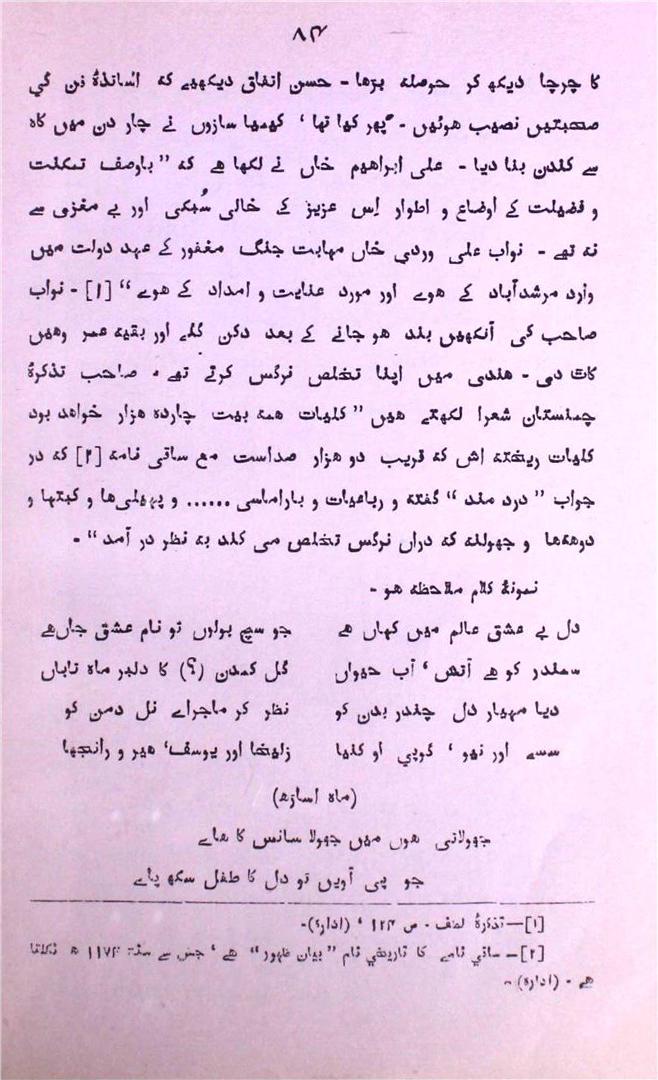 ۸۴
کا چرچا دیکھ کر حوصلہ بڑھا - حسن اتفاق دیکھیے کہ اساتذۂ فن کي
صحبتیں نصیب ہوئیں - پھر کیا تھا ' کیمیا سازوں نے چار دن میں کاہ
سے کندن بنا دیا - علی ابراہیم خاں نے لکھا ہے کہ " باوصف تمکنت
و فضیلت کے اوضاع و اطوار اِس عزیز کے خالی سُبکی اور بے مغزی سے
نہ تھے - نواب علی وردی خاں مہابت جنگ مغفور کے عہد دولت میں
وارد مرشدآباد کے ہوے اور مورد عنایت و امداد کے ہوے " [۱] - نواب
صاحب کی آنکھیں بند ہو جانے کے بعد دکن گئے اور بقیہ عمر وہیں
کاٹ دی - ہندی میں اپنا تخلص نرگس کرتے تھے - صاحب تذکرۂ
چمنستان شعرا لکھتے ہیں " کلیات ہمہ بیت چاردہ ہزار خواہد بود
کلیات ریختہ اش کہ قریب دو ہزار صداست مع ساقی نامہ [۲] کہ در
جواب " درد مند " گفتہ و رباعیات و باراماسی ...... و پہیلی‌ہا و کبتہا و
دوہہ‌ہا و جھولنہ کہ دراں نرگس تخلص می کند بہ نظر در آمد " -
نمونۂ کلام ملاحظہ ہو -
دل بے عشق عالم میں کہاں ہے جو سچ بولوں تو نام عشق جاں‌ہے
سمندر کو ہے آتش ' آب حیواں گل کمدن (؟) کا دلبر ماہ تاباں
دیا مہیار دل چندر بدن کو نظر کر ماجراے نل دمن کو
سسے اور نیو ' گوپي او کنیا زلیخا اور یوسف' ہیر و رانجھا
(ماہ اساڑھ)
جھولاتی ہوں میں جھولا سانس کا ہاے
جو پی آویں تو دل کا طفل سکھ پاے
[۱]—تذکرۂ لطف - ص ۱۲۴ ' (ادارہ)-
[۲]— ساقي نامے کا تاریخي نام " بیان ظہور " ہے ' جس سے سنہ ۱۱۷۴ ھ نکلتا
ہے - (ادارہ) -